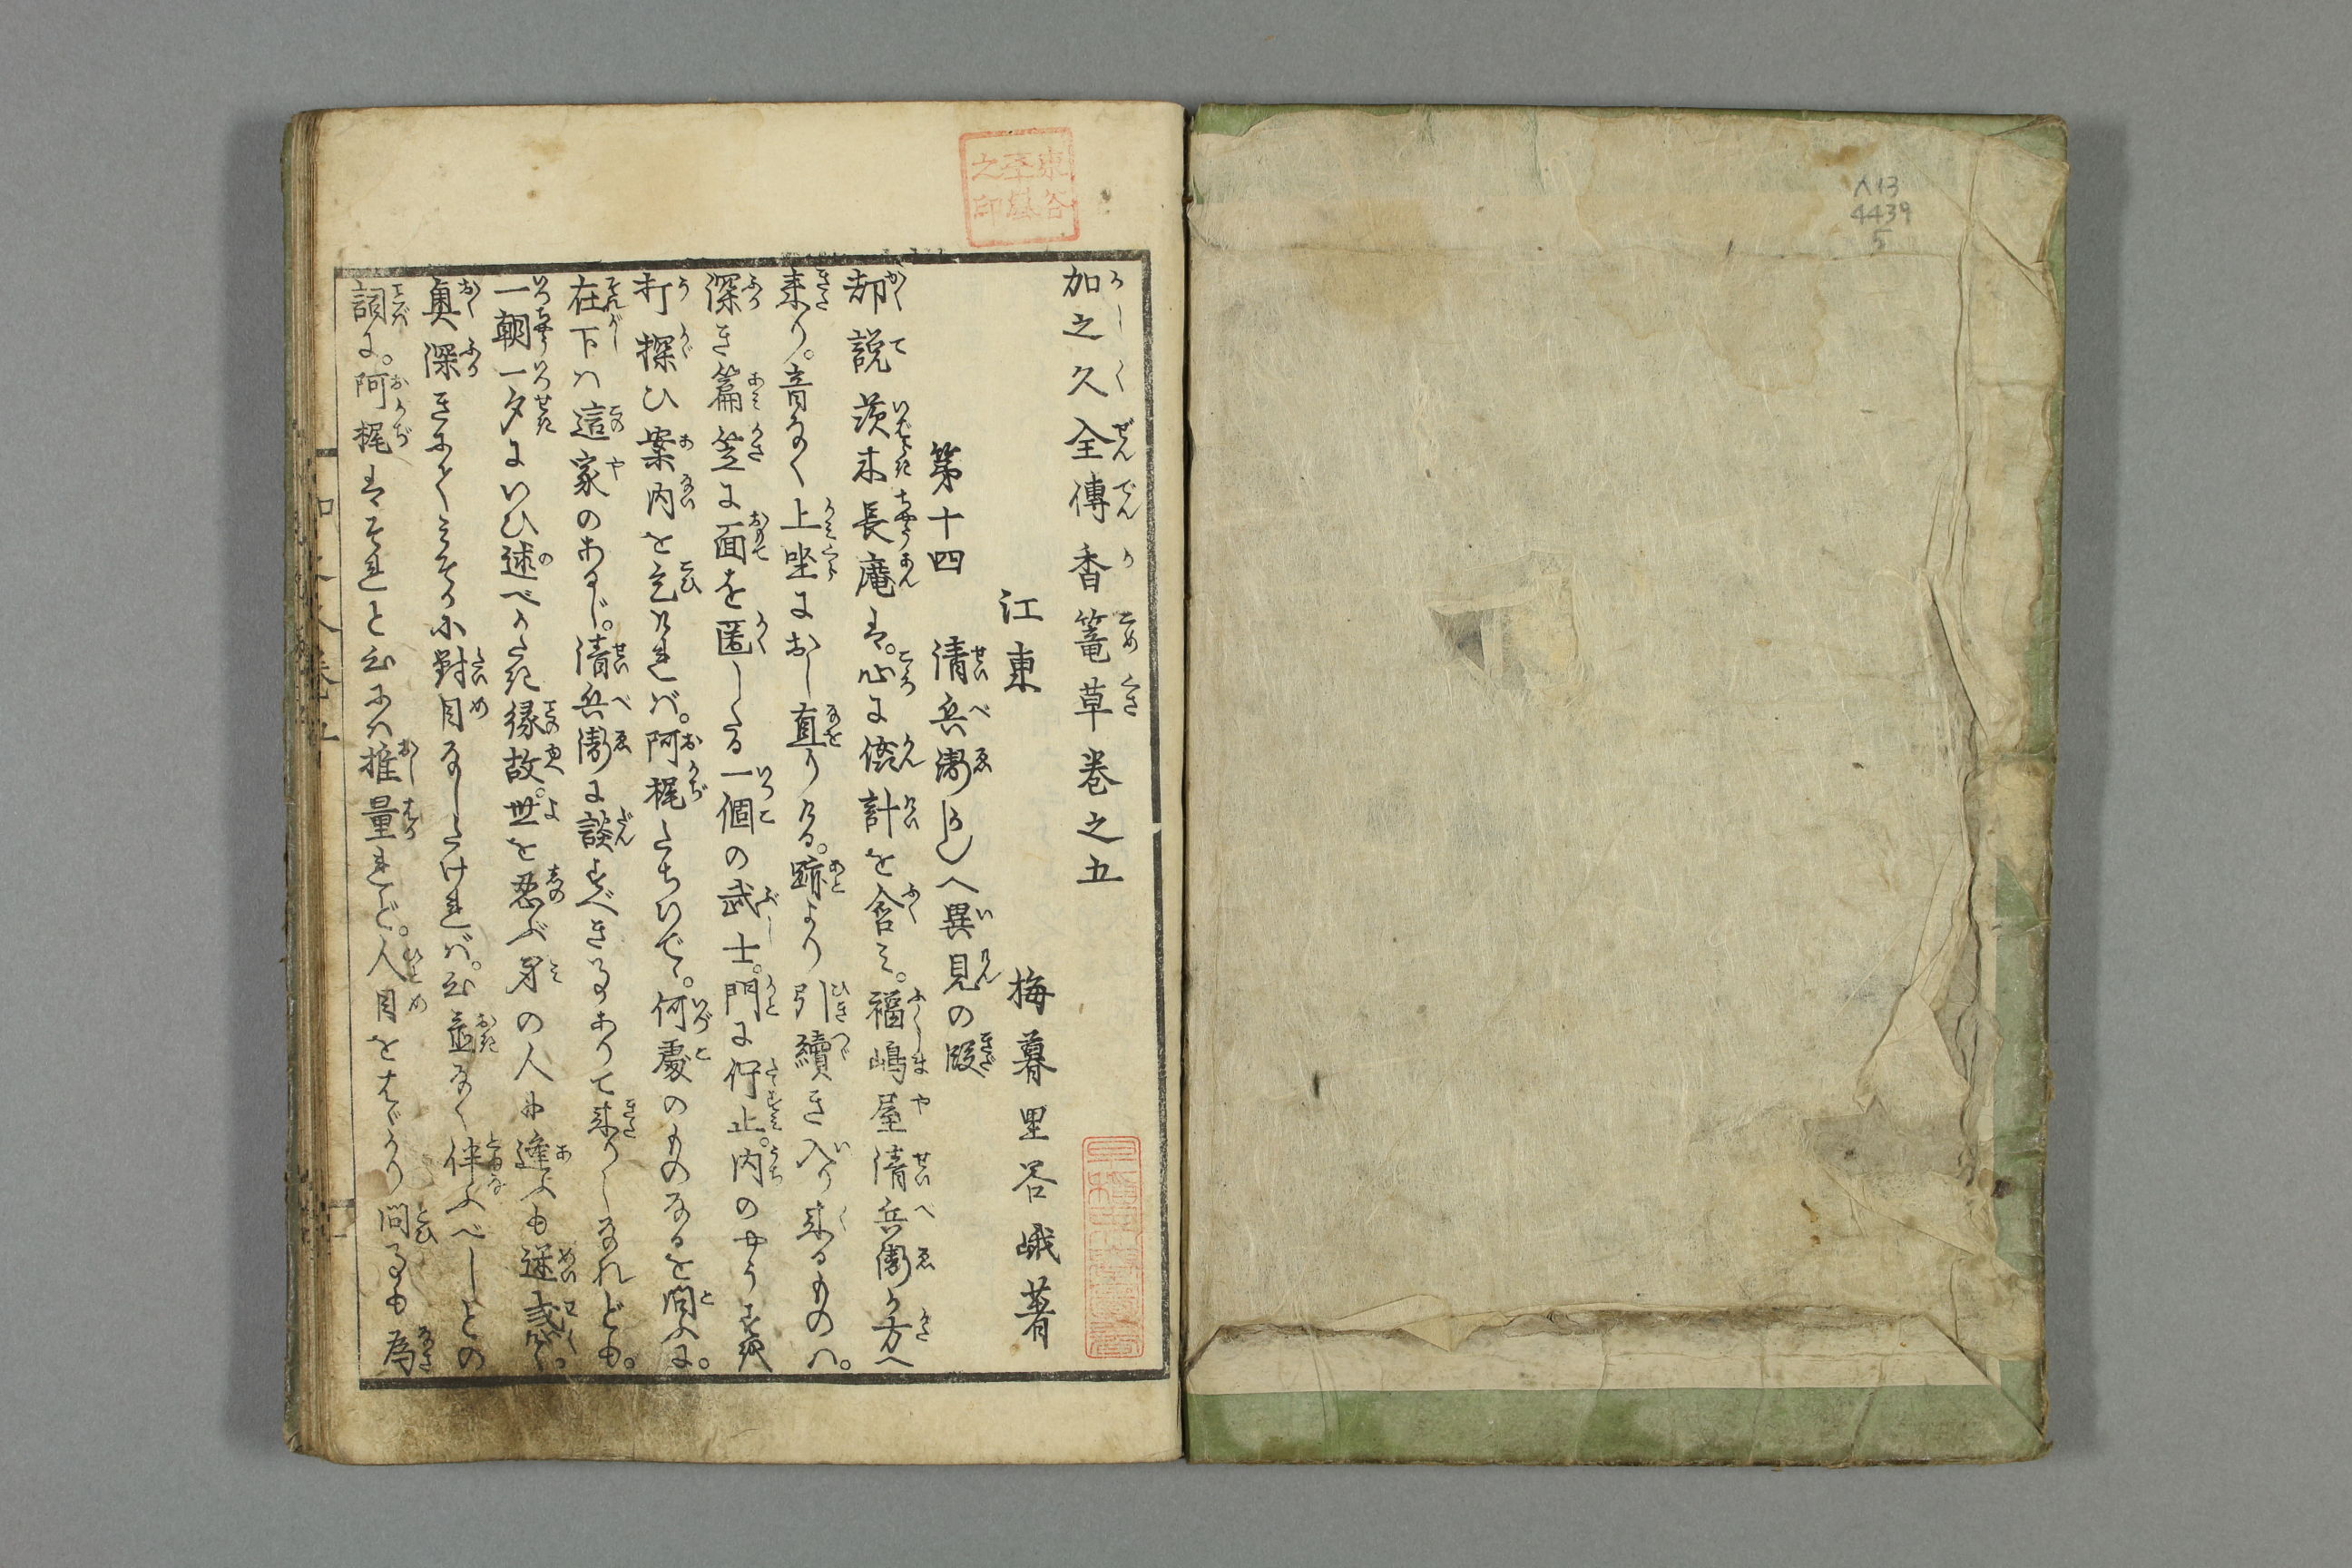 ヘ13
4439
5
加之久全傳香篭草巻之五
江東 梅暮里谷峨著
第十四 清兵衞かしくへ異見の段
却説茨木長庵は。心に俗計を含み。福嶋屋清兵衞が方へ
来り。音なく上坐におし直りける。跡より引續き入り来るものハ。
深き篇笠に面を匿したる一個の武士。門に佇止。内のやうすを
打探ひ案内を乞けれバ。阿梶たちいで。何處のものなるを問ふに。
在下ハ這家のあるじ。清兵衞に談ずべき事ありて来りしなれども。
一朝一夕にいひ述べがたき縁故。世を忍ぶ身の人に逢ふも迷惑。
奥深きにてひそかに對目なしたけれバ。
詞に。阿梶はそれと
推量れど。人目をはゞかり問事も為
東谷
之印